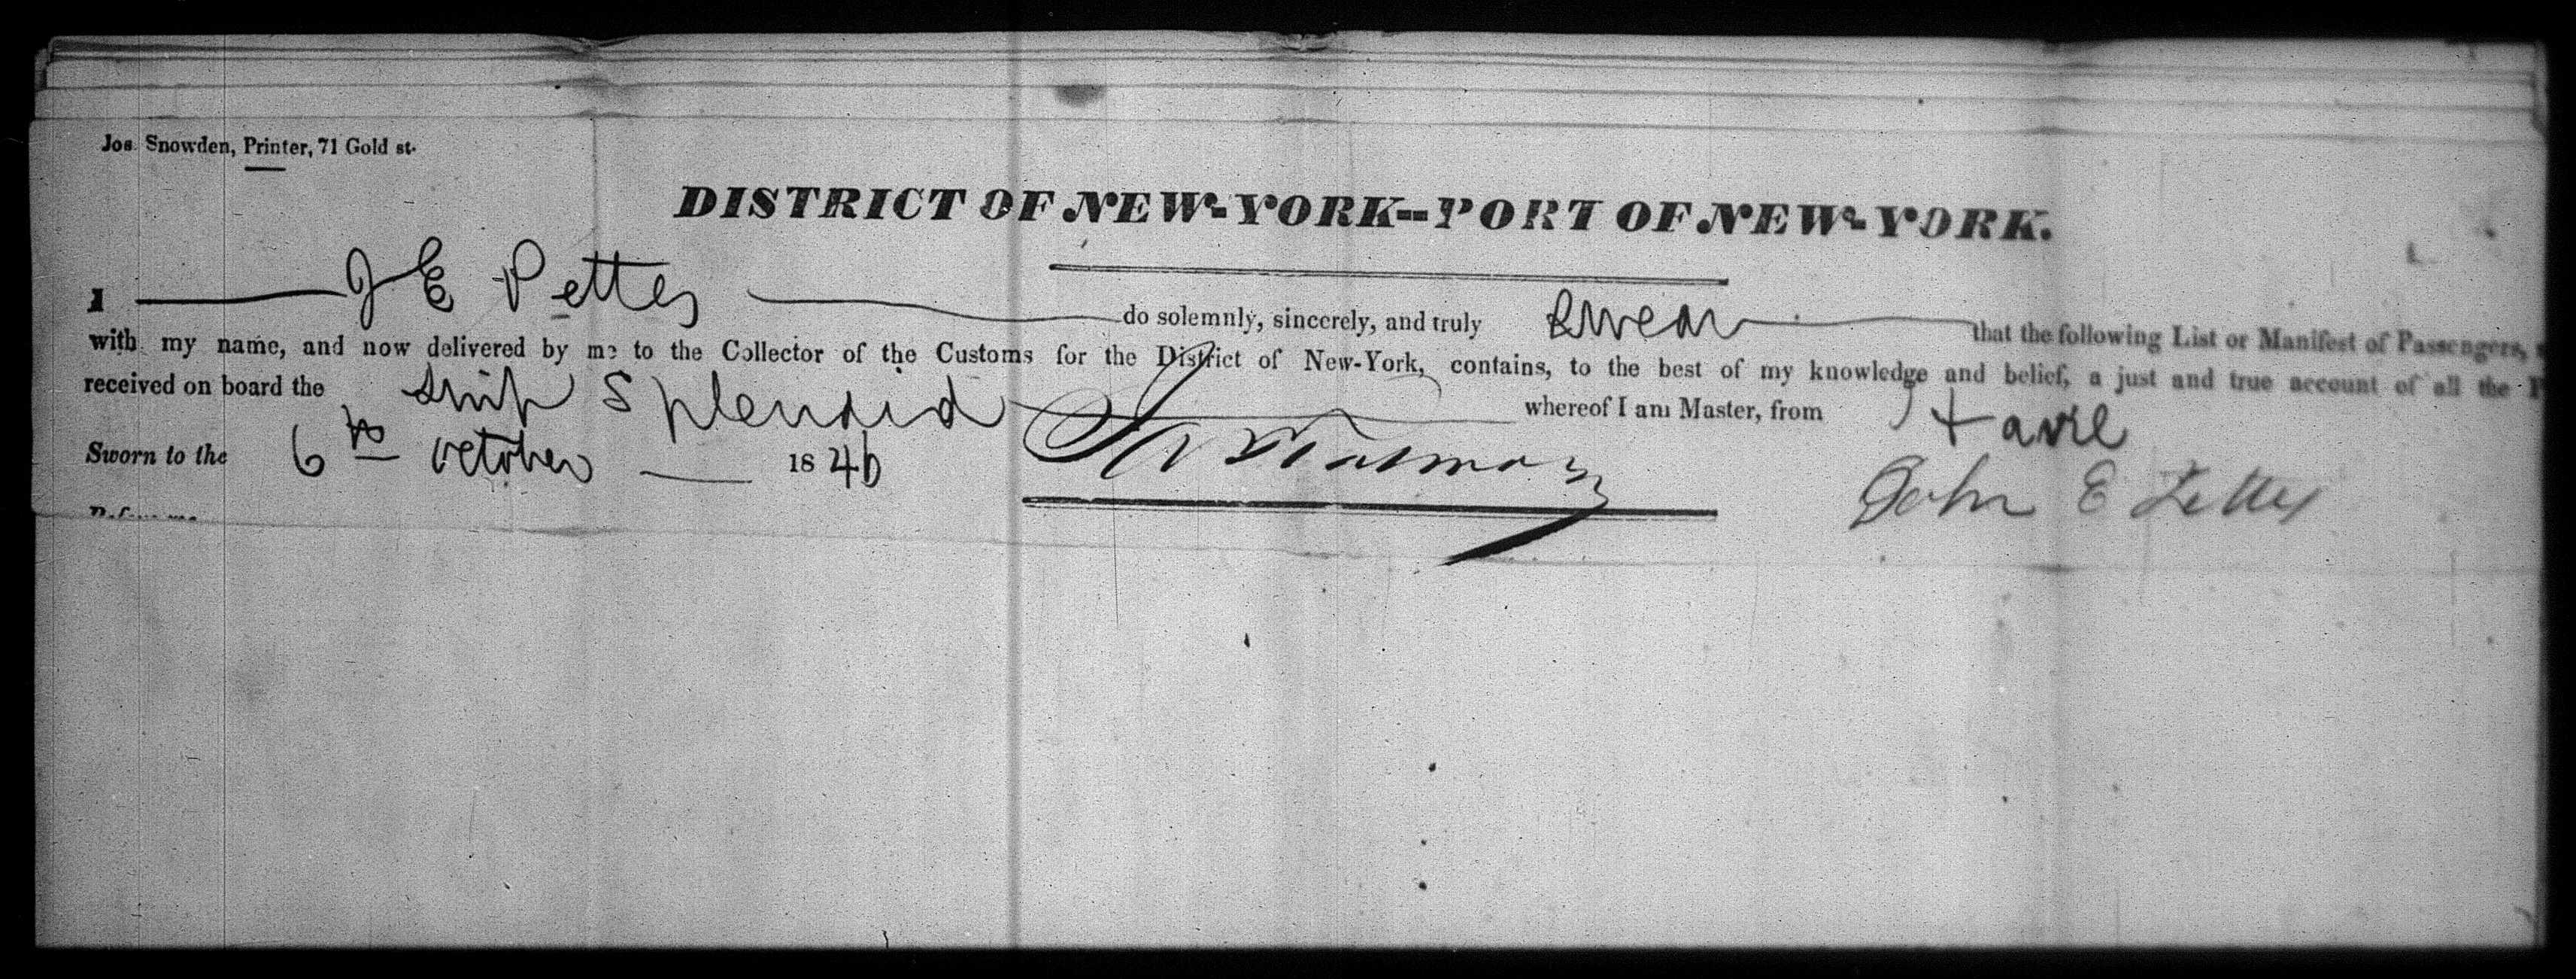 Jos. Snowden, Printer, 71 Gold st.
DISTRICT OF NEW-YORK--PORT OF NEW-YORK.
I J E Pettes do solemnly, sincerely, and truly swear that the following List or Manifest of Passengers,
with my name, and now delivered by me to the Collector of the Customs for the District of New-York, contains, to the best of my knowledge and belief, a just and true account of all the P
received on board the Ship Splendid whereof I am Master, from Havre
Sworn to the 6th October 1846
John E Pettes